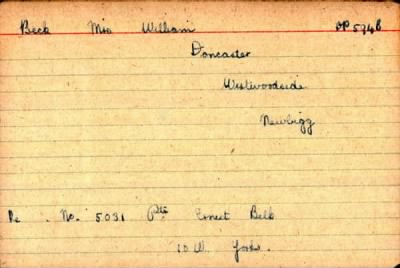 Beck Mrs William DP 5346
Doncaster
Westwoodside
Newbigg
Re. No. 5031 Pte Ernest Belk
10 W. Yorks.